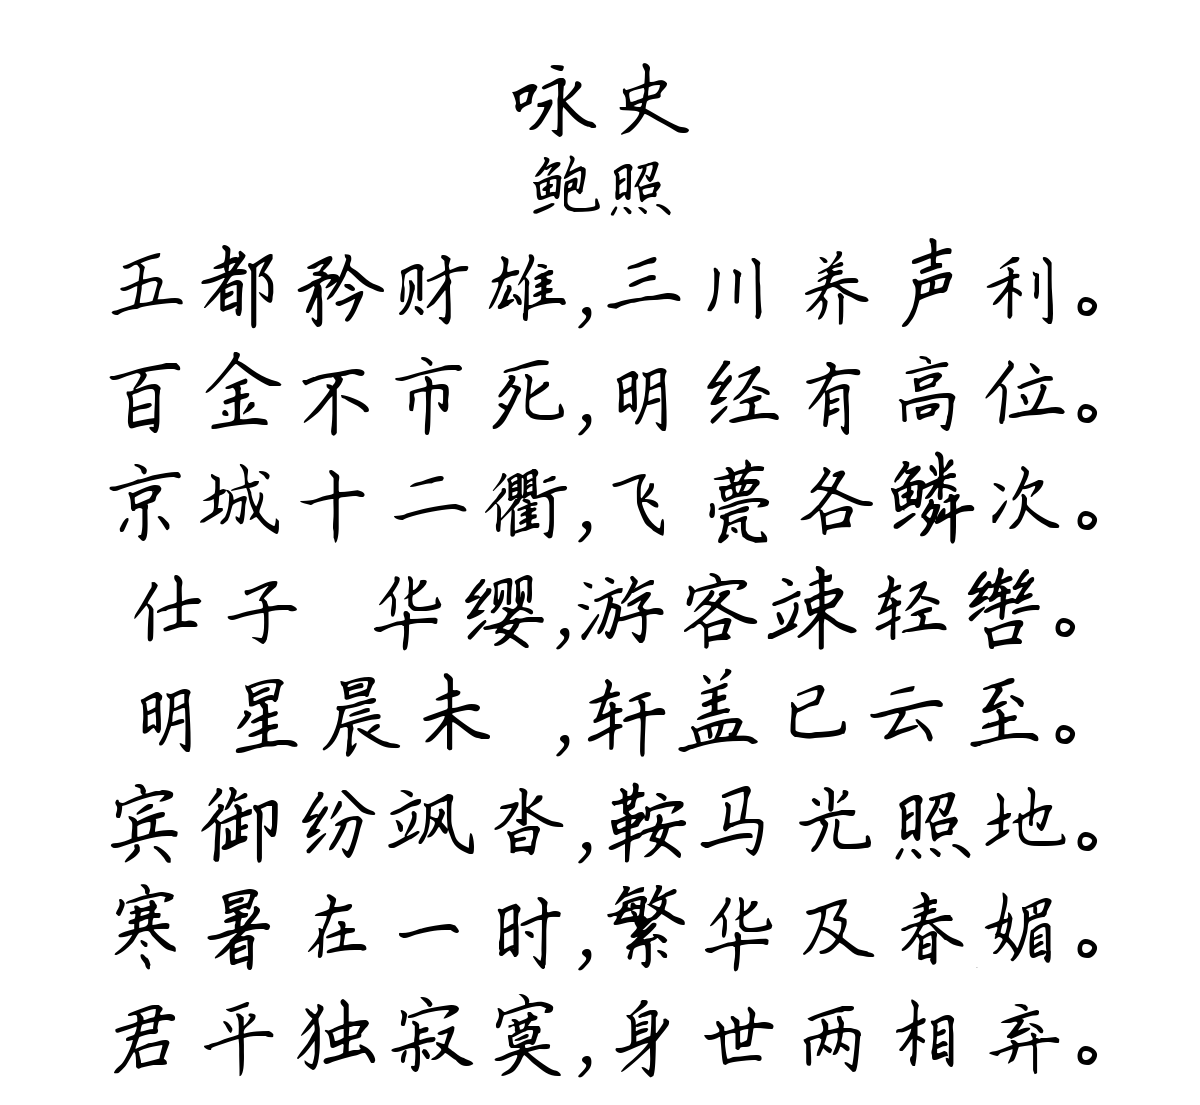 咏史
鲍照
五都矜财雄,三川养声利。
百金不市死,明经有高位。
京城十二衢,飞甍各鳞次。
仕子 华缨,游客竦轻辔。
明星晨未 ,轩盖已云至。
宾御纷飒沓,鞍马光照地。
寒暑在一时,繁华及春媚。
君平独寂寞,身世两相弃。